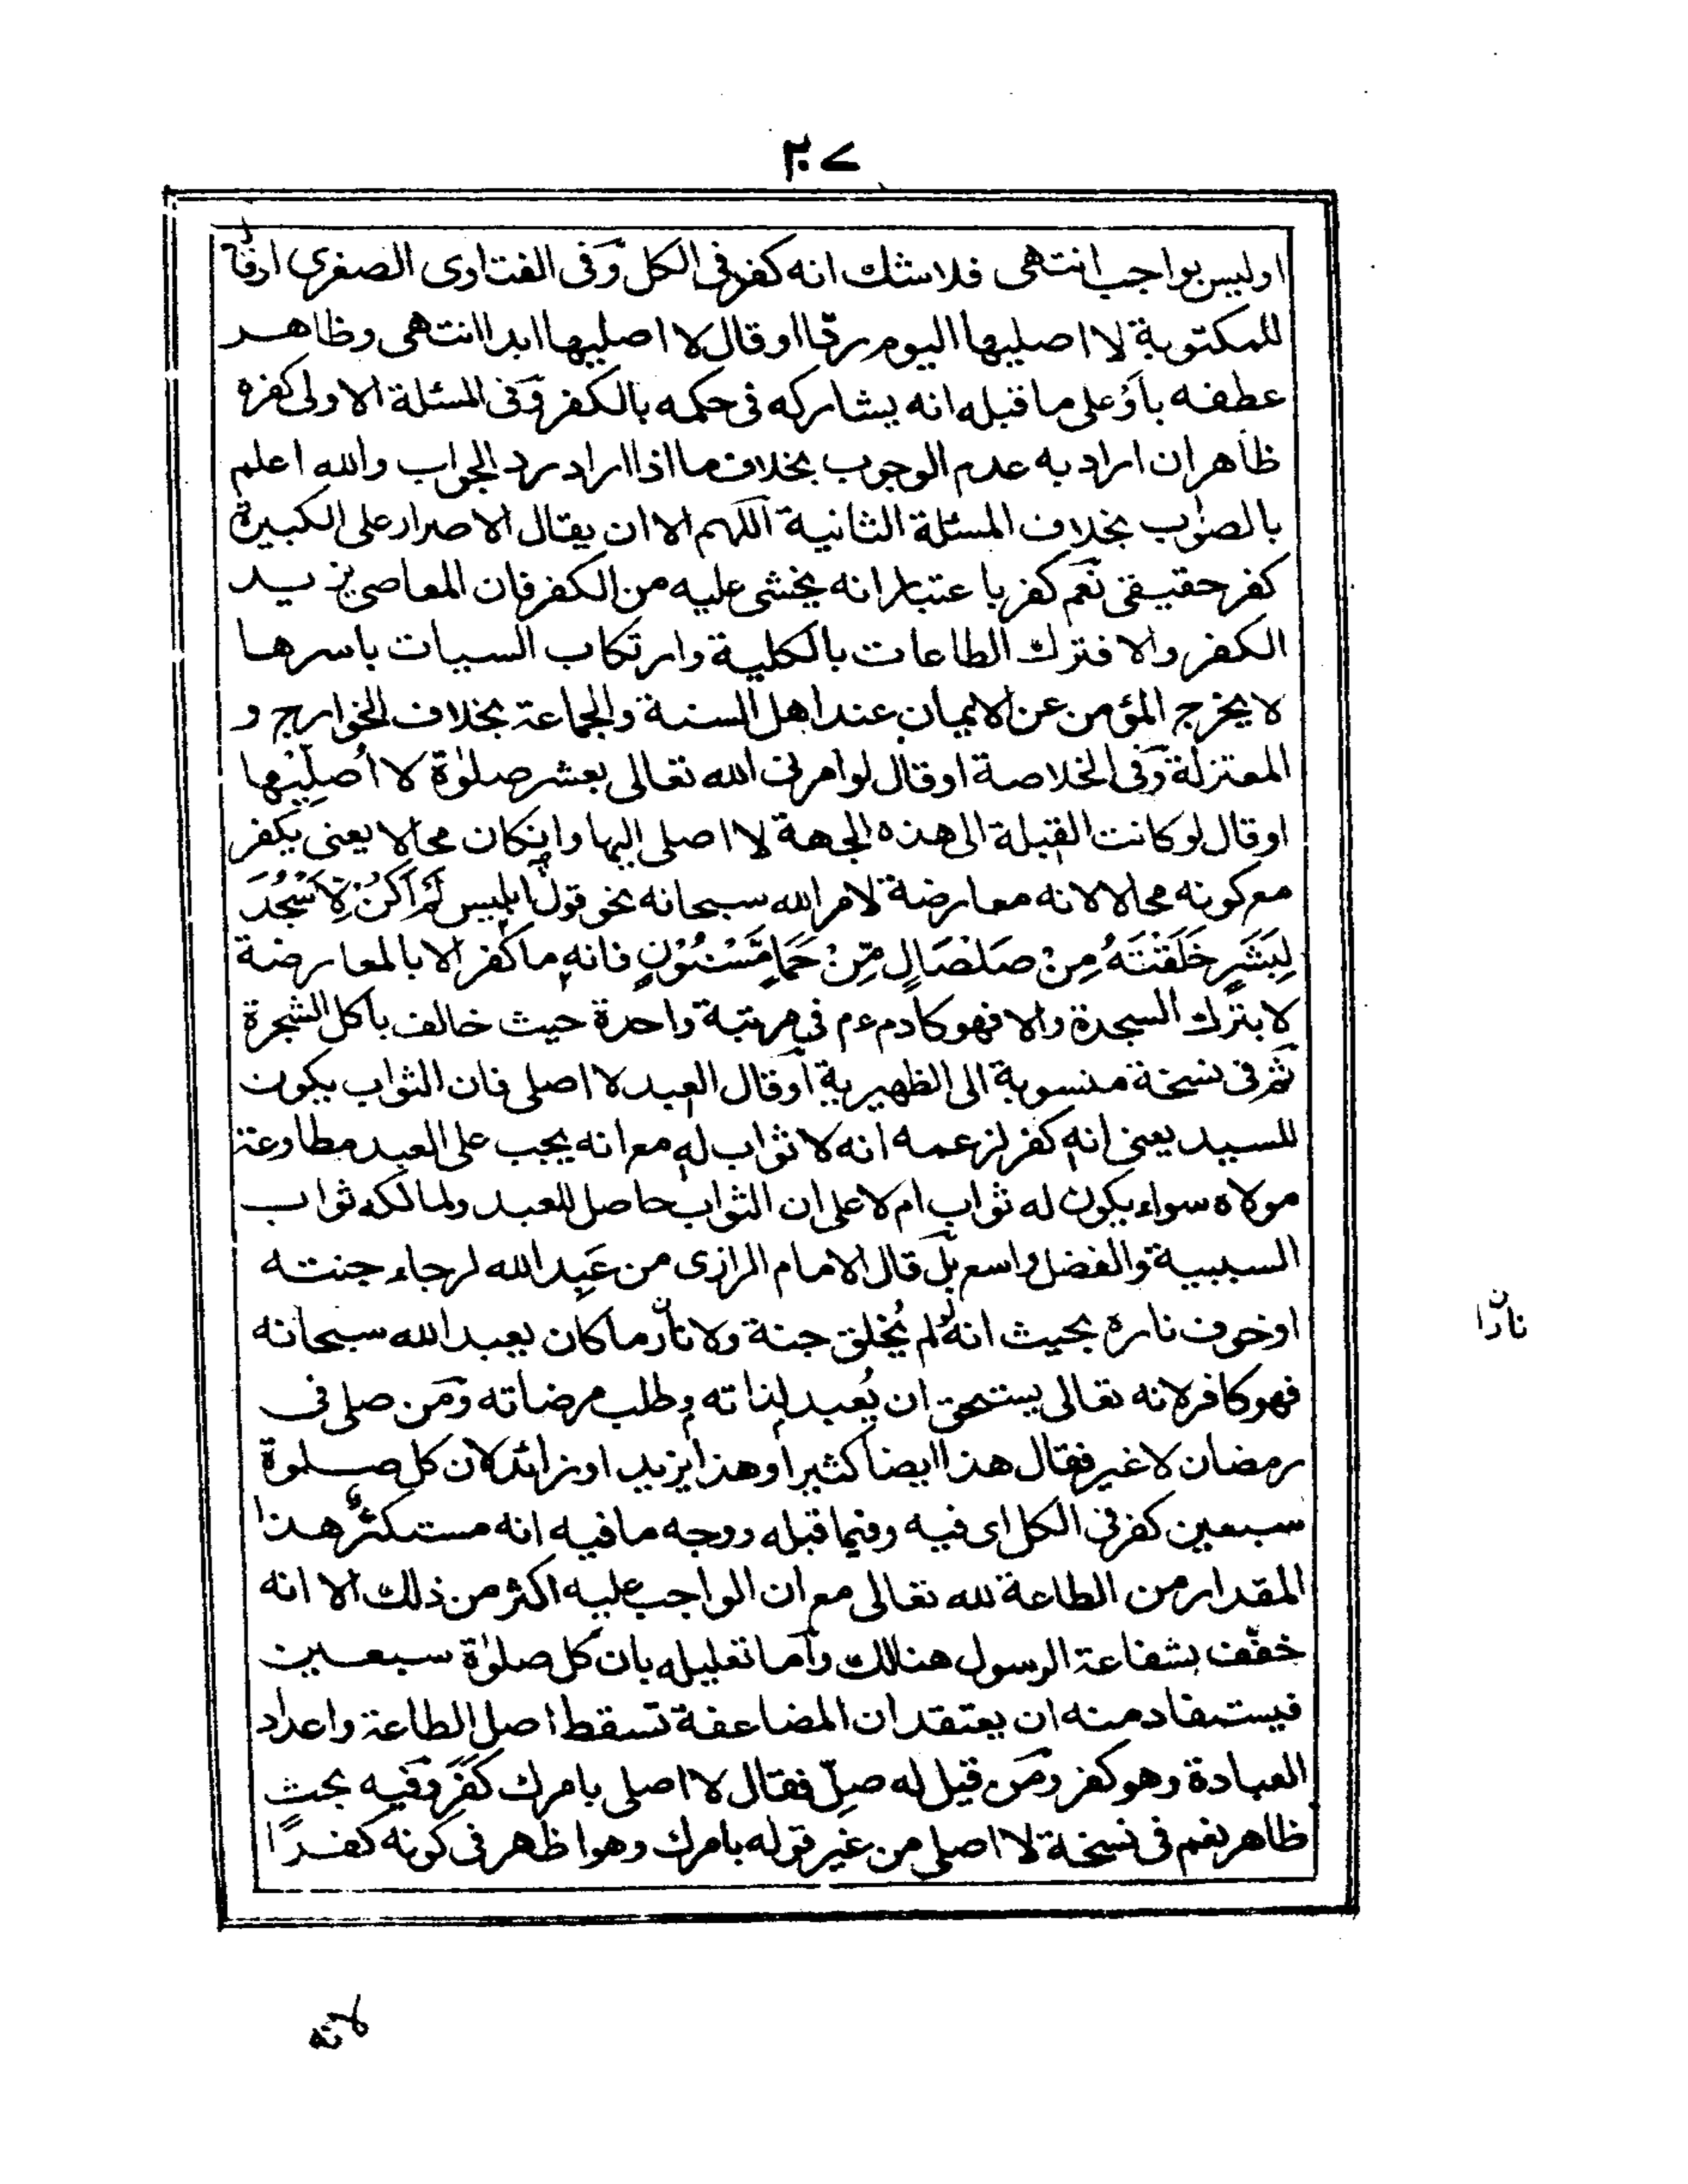 ٢٠٧
اوليس بواجب انتهى فلاشك انه كفر فى الكل وفى الفتاوى الصغرى اوقال
للمكتوبة لا اصليها اليوم ردّا اوقال لا اصليها ابدا انتهى وظاهر
عطفه باَوْ على ما قبله انه يشاركه فى حكمه بالكفر وفى المسئلة الاولى كفره
ظاهر ان اراد به عدم الوجوب بخلاف ما اذا اراد رد الجواب والله اعلم
بالصواب بخلاف المسئلة الثانية اللهم الا ان يقال الاصرار على الكبيرة
كفر حقيقى نعم كفر باعتبار انه يخشى عليه من الكفر فان المعاصى يزيد
الكفر والا فترك الطاعات بالكلية وارتكاب السيات باسرها
لا يخرج المؤمن عن الايمان عند اهل السنة والجماعة بخلاف الخوارج و
المعتزلة وفى الخلاصة اوقال لو امرنى الله تعالى بعشر صلوٰة لا اُصلِّيْها
اوقال لو كانت القبلة الى هذه الجهة لا اصلى اليها وان كان محالا يعنى يكفر
مع كونه محالا لانه معارضة لامر الله سبحانه نحو قول ابليس لَمْ اَكُنْ لِاَسْجُدَ
لِبَشَرٍ خَلَقْتَهُ مِنْ صَلْصَالٍ مِّنْ حَمَاٍ مَّسْنُوْنٍ فانه ما كفر الا بالمعارضة
لا بترك السجدة والا فهو كادم ءم فى مرتبة واحدة حيث خالف باكل الشجرة
ثم فى نسخة منسوبة الى الظهيرية اوقال العبد لا اصلى فان الثواب يكون
للسيد يعنى انه كفر لزعمه انه لا ثواب له مع انه يجب على العبد مطاوعة
مولاه سواء يكون له ثواب ام لا على ان الثواب حاصل للعبد ولمالكه ثواب
السببية والفضل واسع بل قال الامام الرازى من عَبِد الله لرجاء جنته
اوخوف ناره بحيث انه لو لم يُخلق جنة ولا نار ما كان يعبد الله سبحانه
نارا ن
فهو كافر لانه تعالى يستحق ان يُعبد لذاته وطلب مرضاته ومَن صلى فى
رمضان لا غير فقال هذا ايضا كثير اوهذا يزيد اوزائد لان كل صلوة
سبعين كفر فى الكل اى فيه وفيما قبله ووجه ما فيه انه مستكثر هذا
المقدار من الطاعة لله تعالى مع ان الواجب عليه اكثر من ذلك الا انه
خفّف بشفاعة الرسول هنالك واَما تعليله بان كل صلوٰة سبعين
فيستفاد منه ان يعتقد ان المضاعفة تسقط اصل الطاعة واعداد
العبادة وهو كفر ومَن قيل له صلِّ فقال لا اصلى بامرك كَفَر وفيه بحث
ظاهر نعم فى نسخة لا اصلى من غير قوله بامرك وهو اظهر فى كونه كفرًا
لانه